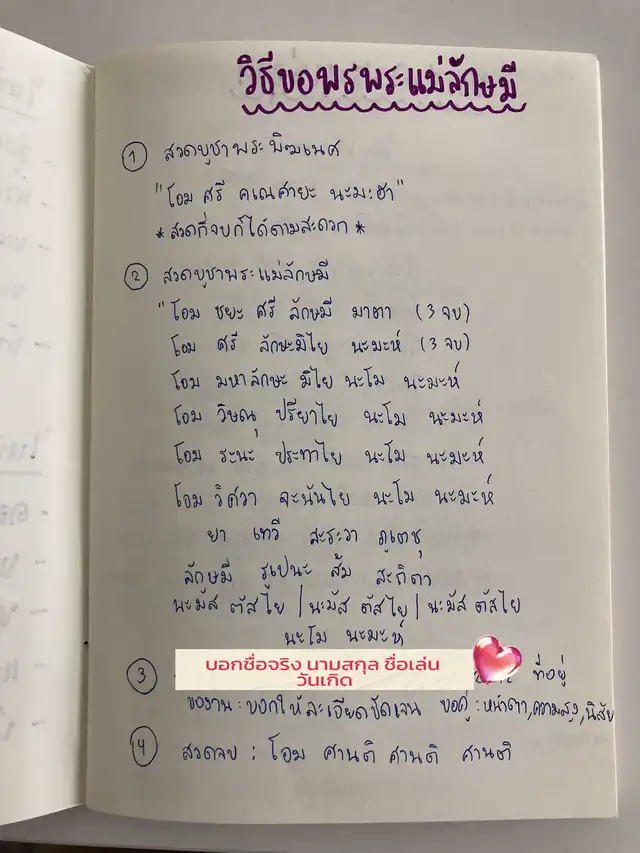 วิธีขอพรพระแม่ลักษมี
① สวดบูชาพระพิฆเนศ
"โอม ศรี คเณศายะ นะมะฮา"
*สวดกี่จบก็ได้ตามสะดวก*
② สวดบูชาพระแม่ลักษมี
"โอม ชยะ ศรี ลักษมี มาตา (3 จบ)
โอม ศรี ลักษะมิไย นะมะห์ (3 จบ)
โอม มหาลักษะ มิไย นะโม นะมะห์
โอม วิษณุ ปรียาไย นะโม นะมะห์
โอม ธะนะ ประทาไย นะโม นะมะห์
โอม วิศวา จะนันไย นะโม นะมะห์
ยา เทวี สะระวา ภูเตชุ
ลักษมี รูเปนะ สัม สะถิตา
นะมัส ตัสไย | นะมัส ตัสไย | นะมัส ตัสไย
นะโม นะมะห์
③ ที่อยู่
บอกชื่อจริง นามสกุล ชื่อเล่น
วันเกิด
ของาน : บอกให้ละเอียดชัดเจน ขอคู่ : หน้าตา, ความสูง, นิสัย
④ สวดจบ : โอม ศานติ ศานติ ศานติ